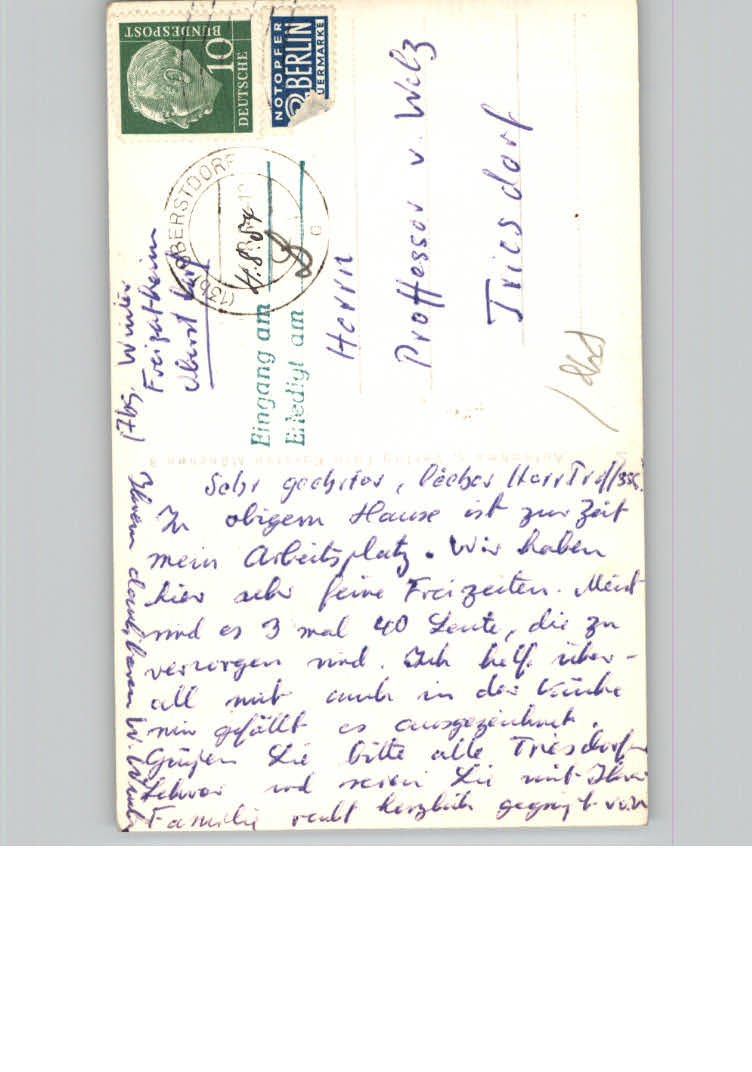 DEUTSCHE
BUNDESPOST
10
NOTOPFER
2 BERLIN
STEUERMARKE
(13b) OBERSTDORF
c
4.8.54
Eingang am
Erledigt am
Abs. Winter
Freizeitheim
Oberstdorf
Herrn
Proffessor v. Welz
Triesdorf
Sehr geehrter, lieber Herr Proffessor
In obigem Hause ist zur Zeit
mein Arbeitsplatz. Wir haben
hier sehr feine Freizeiten. Meist
sind es 3 mal 40 Leute, die zu
versorgen sind. Ich helf über-
all mit auch in der Küche
mir gefällt es ausgezeichnet.
Grüßen Sie bitte alle Triesdorfer
Lehrer und seien Sie mit Ihrer
Familie recht herzlich gegrüßt von
Ihrem dankbaren W. Winter